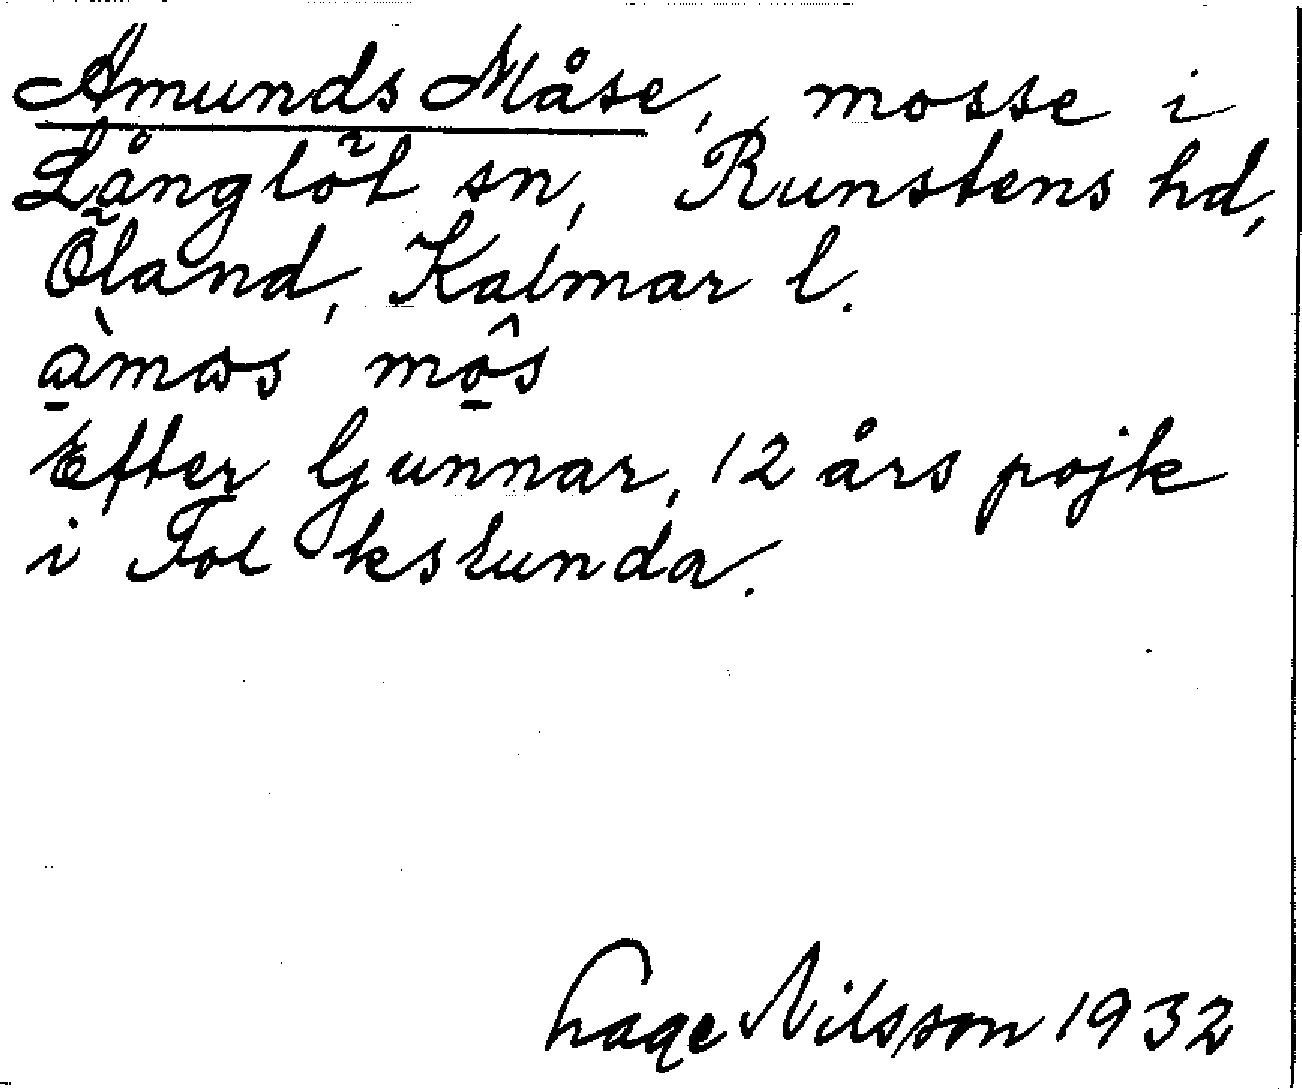 Amunds Måse, mosse i
Långlöt sn, Runstens hd,
Öland, Kalmar l.
Efter Gunnar, 12 års pojk
i Folkslunda.
Nilsson 1932